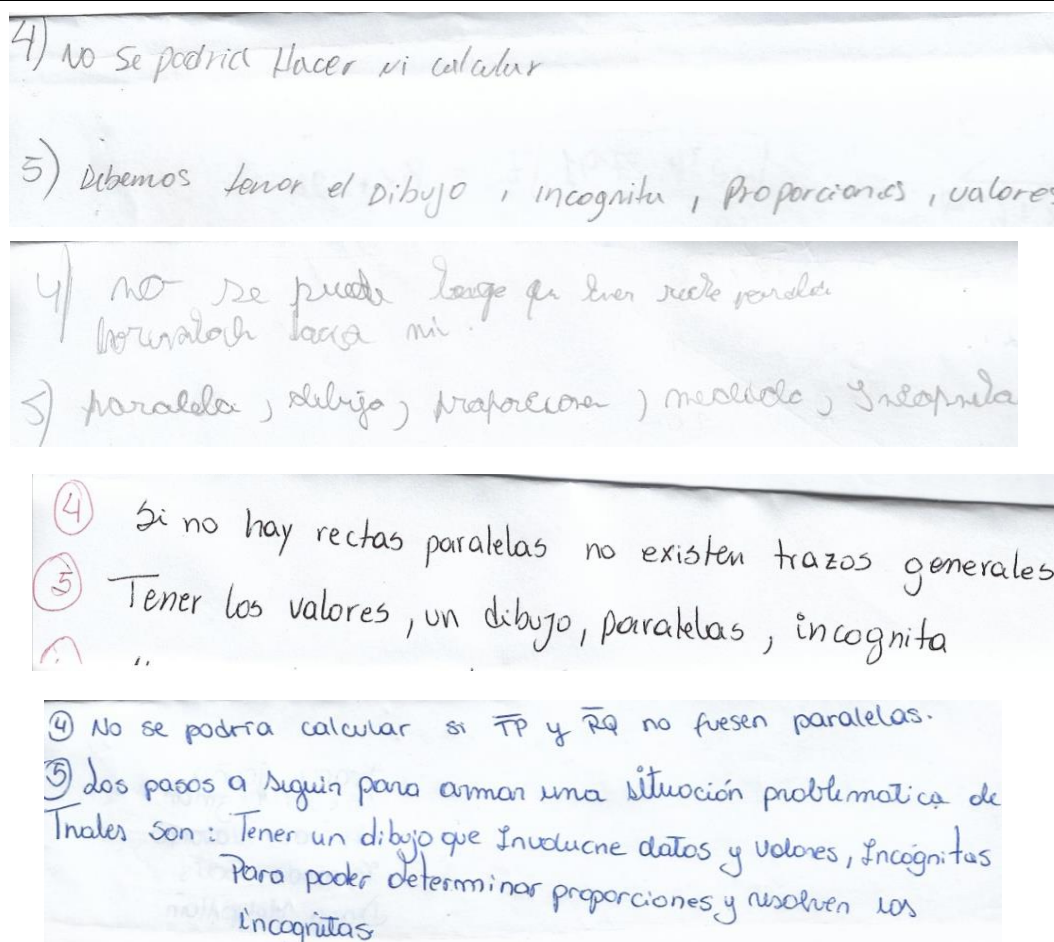 4) No Se podria Hacer ni calcular
5) Debemos tener el Dibujo, incognita, Proporciones, valores
4) no se puede que recta
5) paralela, dibujo, proporcion, medida, Incognita
4 Si no hay rectas paralelas no existen trazos generales
5 Tener los valores, un dibujo, paralelas, incognita
4 No se podría calcular si TP y RQ no fuesen paralelas.
5 Los pasos a seguir para armar una situación problematica de
Thales son: Tener un dibujo que Involucre datos y valores, Incógnitas
Para poder determinar proporciones y resolver las
incognitas